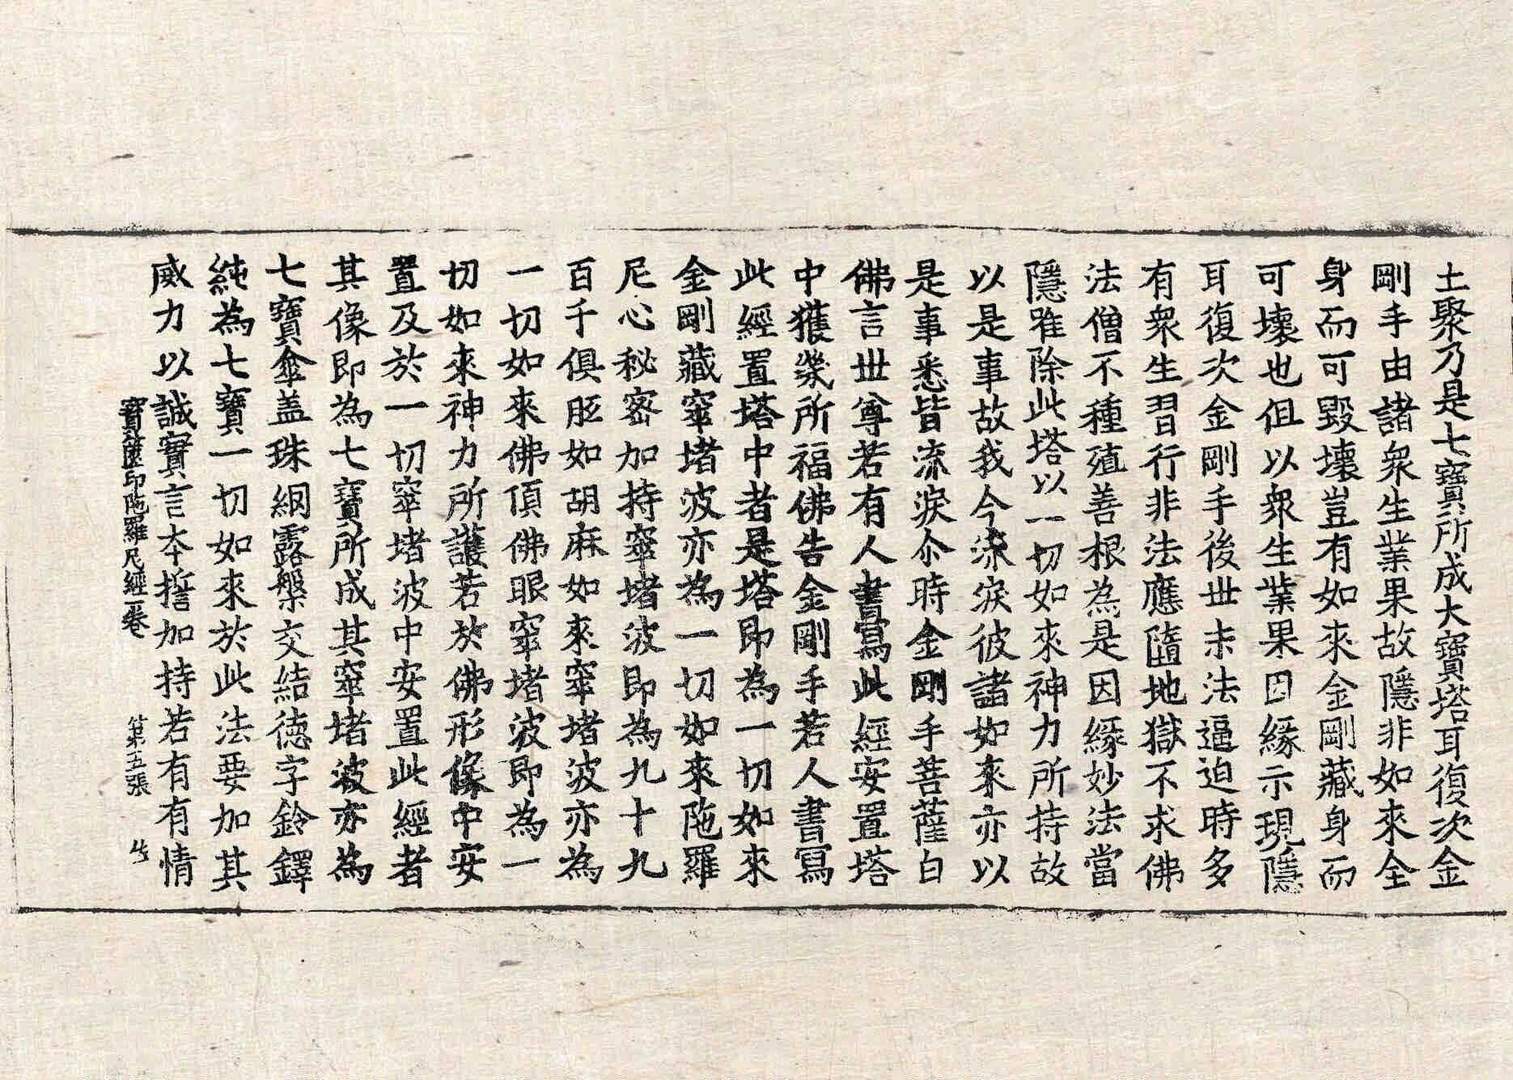 土聚乃是七寶所成大寶塔耳復次金
剛手由諸衆生業果故隱非如來全
身而可毀壞豈有如來金剛藏身而
可壞也伹以衆生業果因緣示現隱
耳復次金剛手後世末法逼迫時多
有衆生習行非法應隨地獄不求佛
法僧不種殖善根為是因緣妙法當
隱唯除此塔以一切如來神力所持故
以是事故我今流淚彼諸如來亦以
是事悉皆流淚尒時金剛手菩薩白
佛言世尊若有人書寫此經安置塔
中獲幾所福佛告金剛手若人書寫
此經置塔中者是塔即為一切如來
金剛藏窣堵波亦為一切如來陁羅
尼心秘密加持窣堵波即為九十九
百千俱胝如胡麻如來窣堵波亦為
一切如來佛頂佛眼窣堵波即為一
切如來神力所護若於佛形像中安
置及於一切窣堵波中安置此經者
其像即為七寶所成其窣堵波亦為
七寶傘盖珠網露槃交結德字鈴鐸
純為七寶一切如來於此法要加其
威力以誠實言夲擔加持若有有情
寶篋印陁羅尼經一卷 第五張